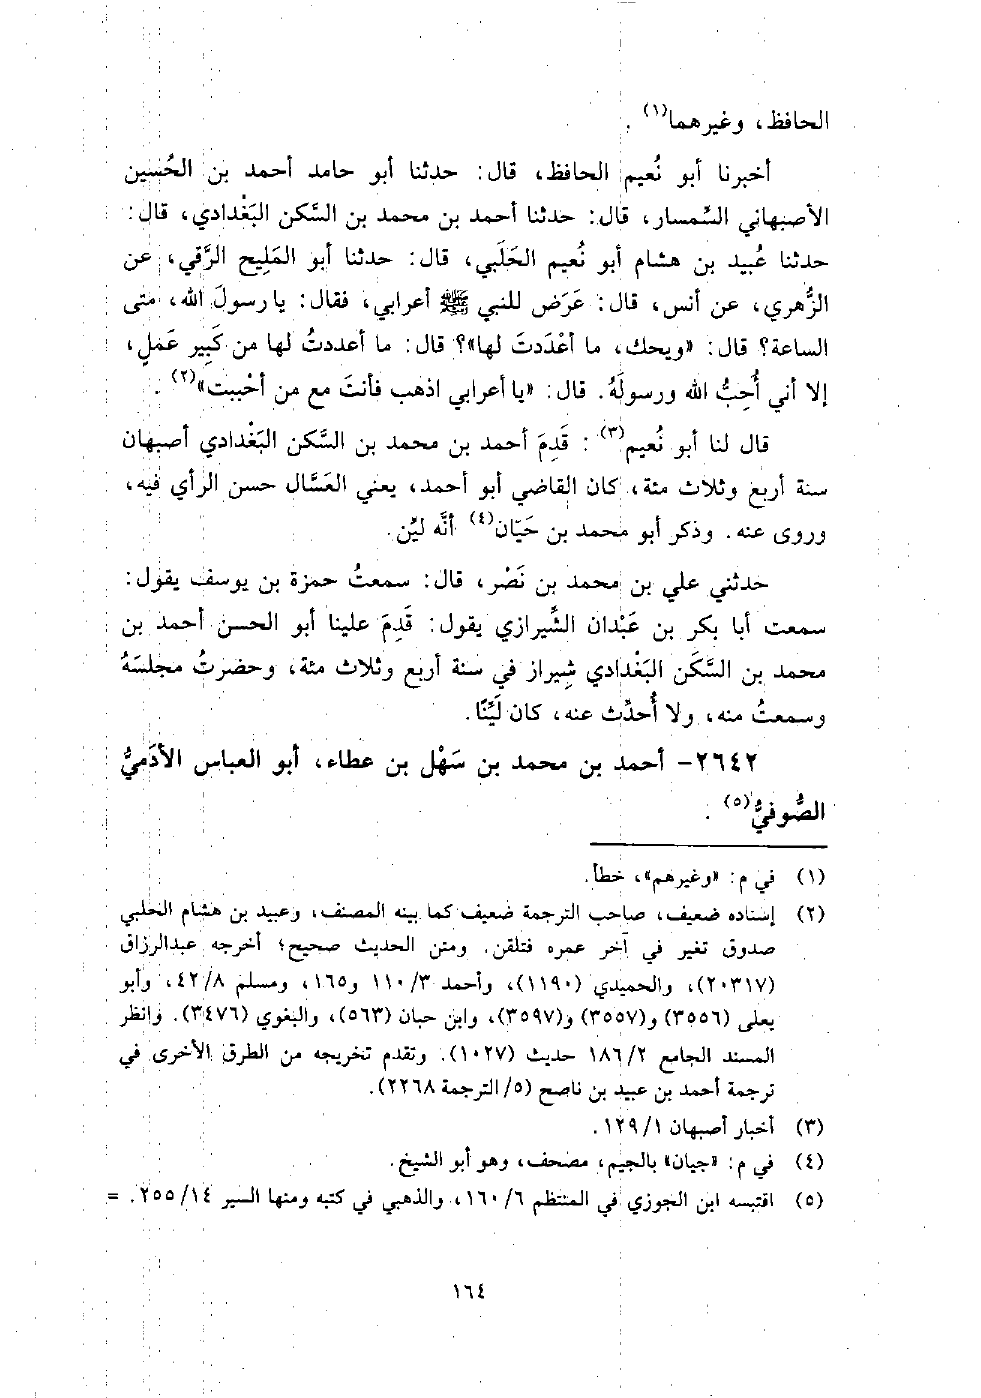 الحافظ، وغيرهما(١) .
أخبرنا أبو نُعيم الحافظ، قال: حدثنا أبو حامد أحمد بن الحُسين
الأصبهاني السِّمسار، قال: حدثنا أحمد بن محمد بن السَّكن البَغْدادي، قال:
حدثنا عُبيد بن هشام أبو نُعيم الحَلَبي، قال: حدثنا أبو المَلِيح الرَّقي، عن
الزُّهري، عن أنس، قال: عَرَض للنبي ﷺ أعرابي، فقال: يا رسولَ الله، متى
الساعة؟ قال: «ويحك، ما أعْدَدتَ لها»؟ قال: ما أعددتُ لها من كَبِير عَملٍ،
إلا أني أُحِبُّ الله ورسولَهُ. قال: «يا أعرابي اذهب فأنتَ مع من أحْببت»(٢) .
قال لنا أبو نُعيم(٣) : قَدِمَ أحمد بن محمد بن السَّكن البَغْدادي أصبهان
سنة أربع وثلاث مئة، كان القاضي أبو أحمد، يعني العَسَّال حسن الرأي فيه،
وروى عنه. وذكر أبو محمد بن حَيّان(٤) أنَّه ليِّن.
حدثني علي بن محمد بن نَصْر، قال: سمعتُ حمزة بن يوسف يقول:
سمعت أبا بكر بن عَبْدان الشِّيرازي يقول: قَدِمَ علينا أبو الحسن أحمد بن
محمد بن السَّكَن البَغْدادي شِيراز في سنة أربع وثلاث مئة، وحضرتُ مجلسَهُ
وسمعتُ منه، ولا أُحدِّث عنه، كان لَيِّنًا.
٢٦٤٢- أحمد بن محمد بن سَهْل بن عطاء، أبو العباس الأدَميُّ
الصُّوفيُّ(٥) .
(١) في م: «وغيرهم»، خطأ.
(٢) إسناده ضعيف، صاحب الترجمة ضعيف كما بينه المصنف، وعبيد بن هشام الحلبي
صدوق تغير في آخر عمره فتلقن. ومتن الحديث صحيح؛ أخرجه عبدالرزاق
(٢٠٣١٧)، والحميدي (١١٩٠)، وأحمد ٣/ ١١٠ و١٦٥، ومسلم ٨/ ٤٢، وأبو
يعلى (٣٥٥٦) و(٣٥٥٧) و(٣٥٩٧)، وابن حبان (٥٦٣)، والبغوي (٣٤٧٦). وانظر
المسند الجامع ٢/ ١٨٦ حديث (١٠٢٧). وتقدم تخريجه من الطرق الأخرى في
ترجمة أحمد بن عبيد بن ناصح (٥/ الترجمة ٢٢٦٨).
(٣) أخبار أصبهان ١/ ١٢٩ .
(٤) في م: «جيان» بالجيم، مصحف، وهو أبو الشيخ.
(٥) اقتبسه ابن الجوزي في المنتظم ٦/ ١٦٠، والذهبي في كتبه ومنها السير ١٤/ ٢٥٥. =
١٦٤